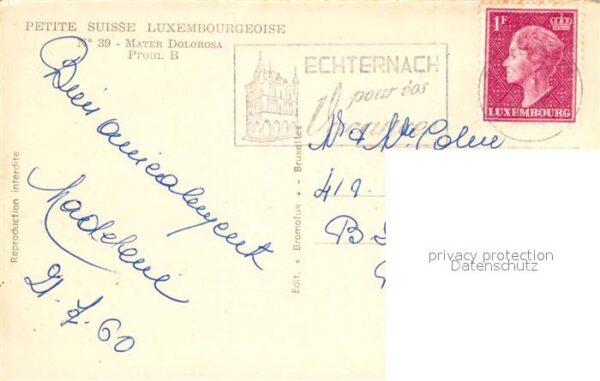 PETITE SUISSE LUXEMBOURGEOISE
N° 39 - MATER DOLOROSA
Prom. B
ECHTERNACH
pour vos
Vacances
1F
LUXEMBOURG
Bien amicalement
Madeleine
21-7-60
Reproduction interdite
Edit. « Bromolux » - Bruxelles
Mr & Mme
419
B
privacy protection
Datenschutz